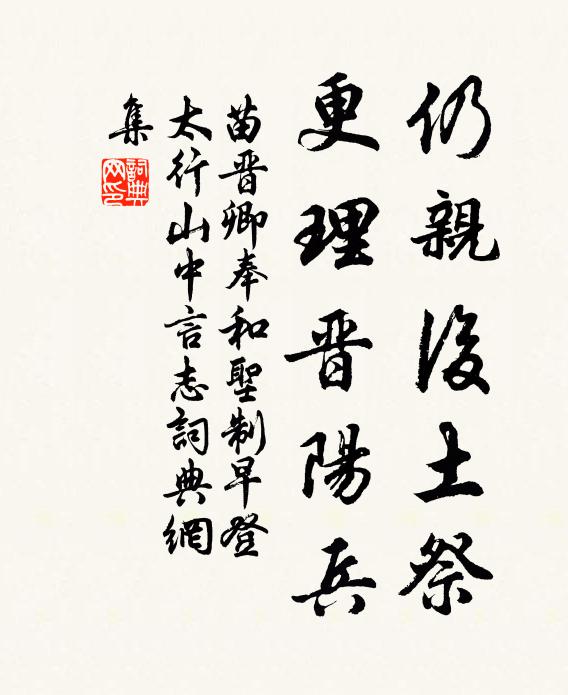 仍親後土祭
更理晋陽兵
苗晋卿奉和聖制早登
太行山中言志詞典網
集
詞典
网印